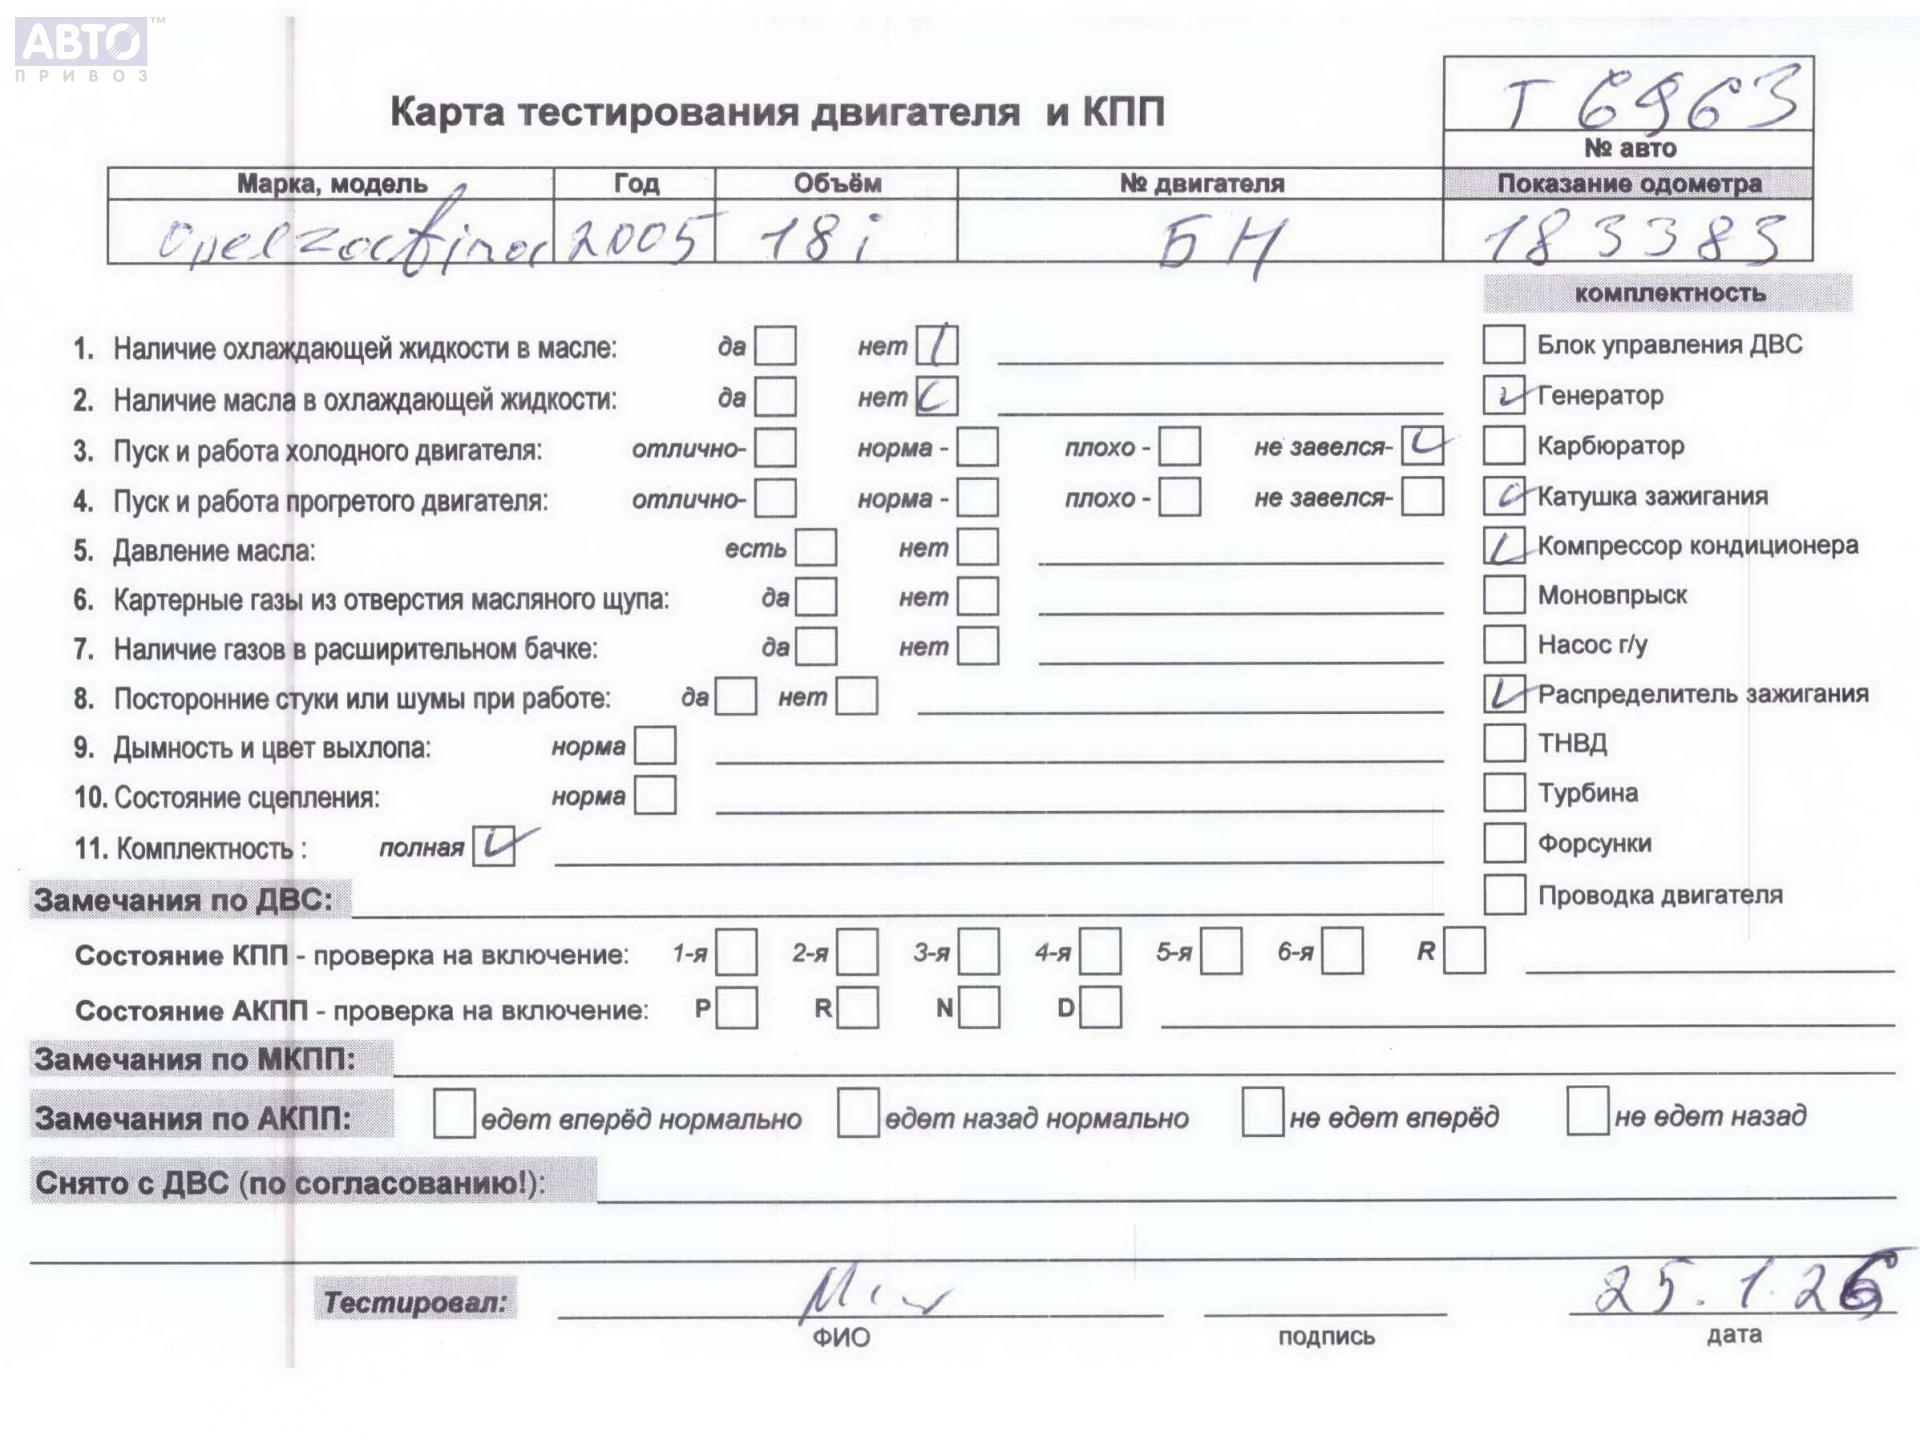 АВТО™
ПРИВОЗ
Карта тестирования двигателя и КПП
Т 6963
№ авто
Марка, модель Год Объём № двигателя Показание одометра
Opel Zafira 2005 18i БН 183383
комплектность
1. Наличие охлаждающей жидкости в масле: да нет Блок управления ДВС
2. Наличие масла в охлаждающей жидкости: да нет Генератор
3. Пуск и работа холодного двигателя: отлично- норма - плохо - не завелся- Карбюратор
4. Пуск и работа прогретого двигателя: отлично- норма - плохо - не завелся- Катушка зажигания
5. Давление масла: есть нет Компрессор кондиционера
6. Картерные газы из отверстия масляного щупа: да нет Моновпрыск
7. Наличие газов в расширительном бачке: да нет Насос г/у
8. Посторонние стуки или шумы при работе: да нет Распределитель зажигания
9. Дымность и цвет выхлопа: норма ТНВД
10. Состояние сцепления: норма Турбина
11. Комплектность : полная Форсунки
Замечания по ДВС: Проводка двигателя
Состояние КПП - проверка на включение: 1-я 2-я 3-я 4-я 5-я 6-я R
Состояние АКПП - проверка на включение: P R N D
Замечания по МКПП:
Замечания по АКПП: едет вперёд нормально едет назад нормально не едет вперёд не едет назад
Снято с ДВС (по согласованию!):
Тестировал: 25.1.26
ФИО подпись дата